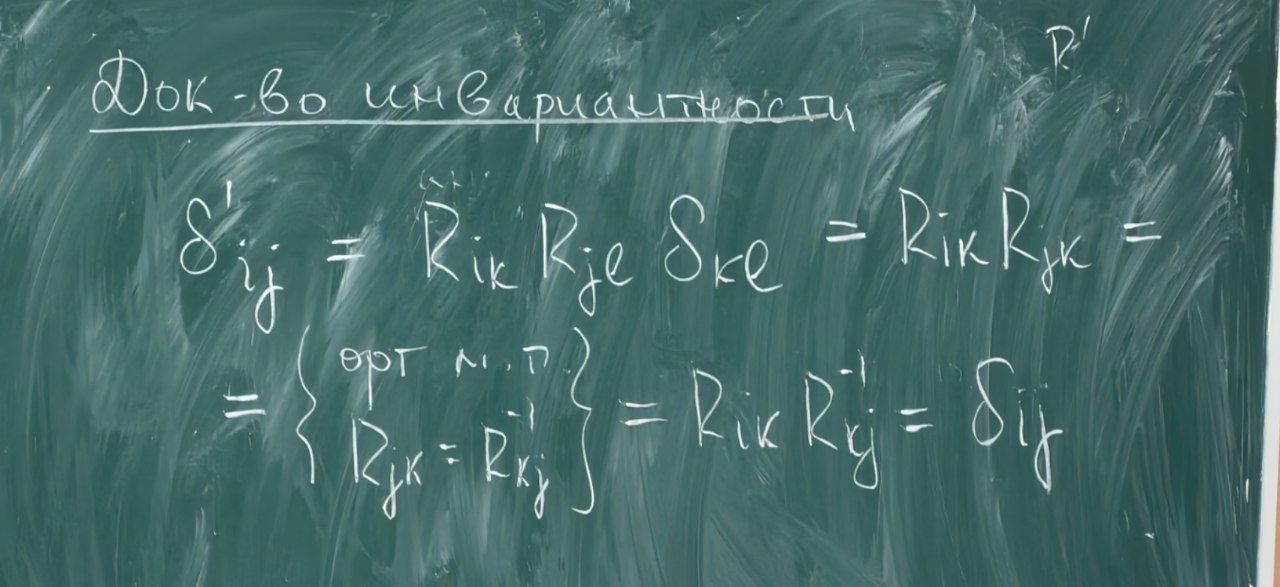 R'
Док-во инвариантности
δ'ij = Rik Rjl δkl = Rik Rjk =
= { орт м.п. Rjk = R⁻¹kj } = Rik R⁻¹kj = δij